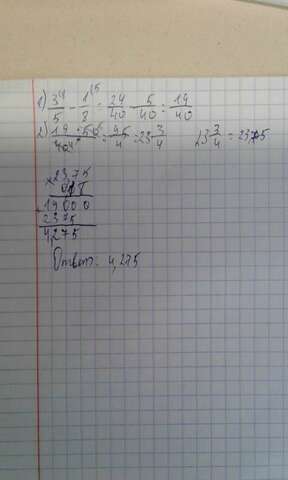 1) 3/5 - 1/8 = 24/40 - 5/40 = 19/40
2) 19·50/40 = 95/4 = 23 3/4 23 3/4 = 23,75
× 23,75
19000
2375
4,275
Ответ: 4,275